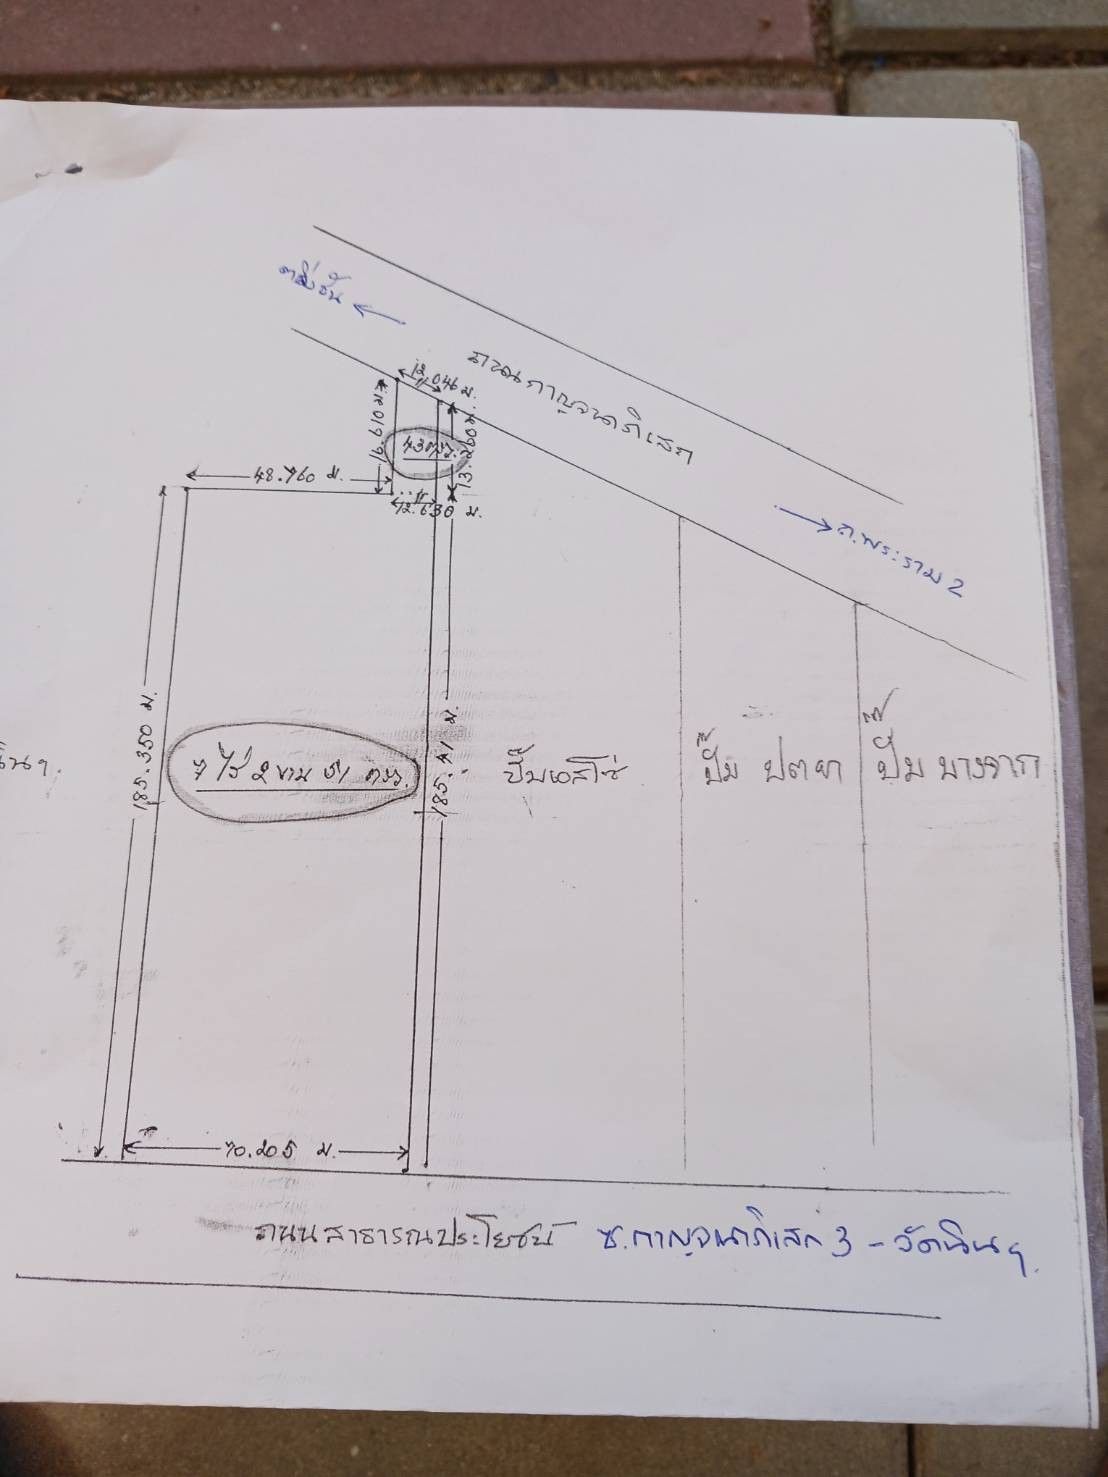 ตลิ่งชัน
ถนนกาญจนาภิเษก
12.046 ม.
16.610 ม.
13.260 ม.
48.760 ม.
12.630 ม.
ถ.พระราม 2
185.350 ม.
7 ไร่ 2 งาน 51 ตรว.
185.41 ม.
ปั๊มเอสโซ่
ปั๊ม ปตท
ปั๊ม บางจาก
70.205 ม.
ถนนสาธารณประโยชน์ ซ.กาญจนาภิเษก 3 - วัดนินฯ